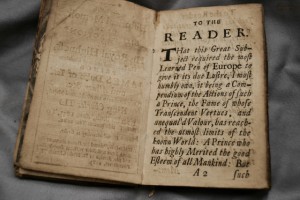 TO THE
READER.
THat this Great Sub-
ject required the most
Learned Pen of Europe to
give it its due Lustre, I most
humbly own, it being a Com-
pendium of the Actions of such
a Prince, the Fame of whose
Transcendent Vertues, and
unequal'd Valour, has reach-
ed the utmost limits of the
known World: A Prince who
has highly Merited the good
Esteem of all Mankind: But
A 2 such